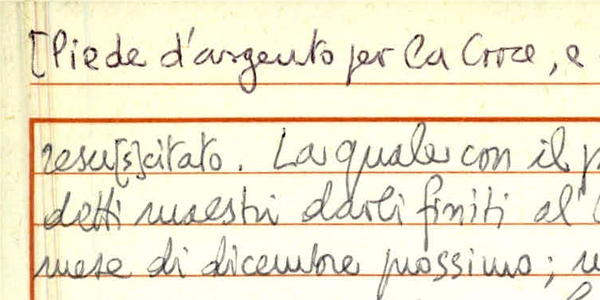 [Piede d'argento per la Croce, e
resu[s]citato. La quale con il
detti maestri darli finiti al
mese di dicembre prossimo;